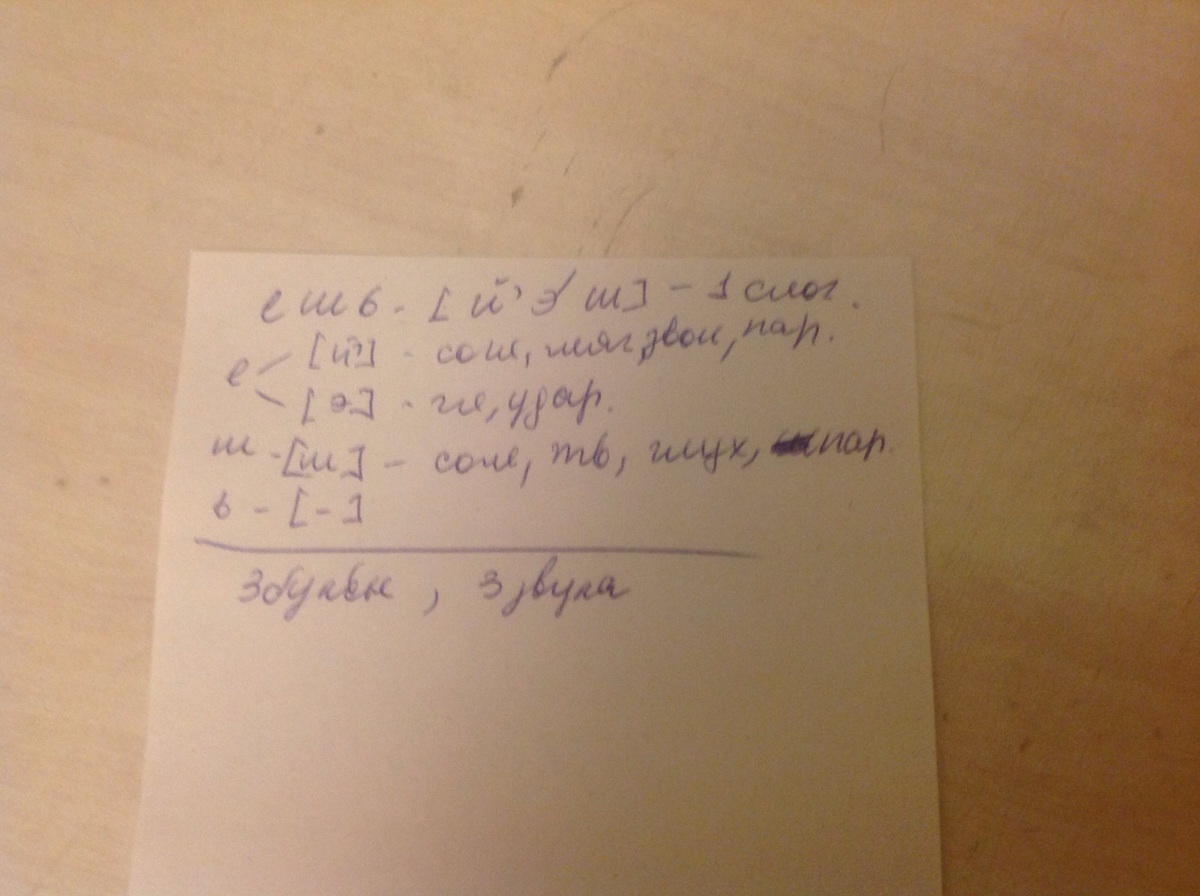 ешь - [й' э́ ш] - 1 слог.
е [й'] - согл, мяг, звон, пар.
[э] - гл, удар.
ш - [ш] - согл, тв, глух, пар.
ь - [-]
3 буквы, 3 звука